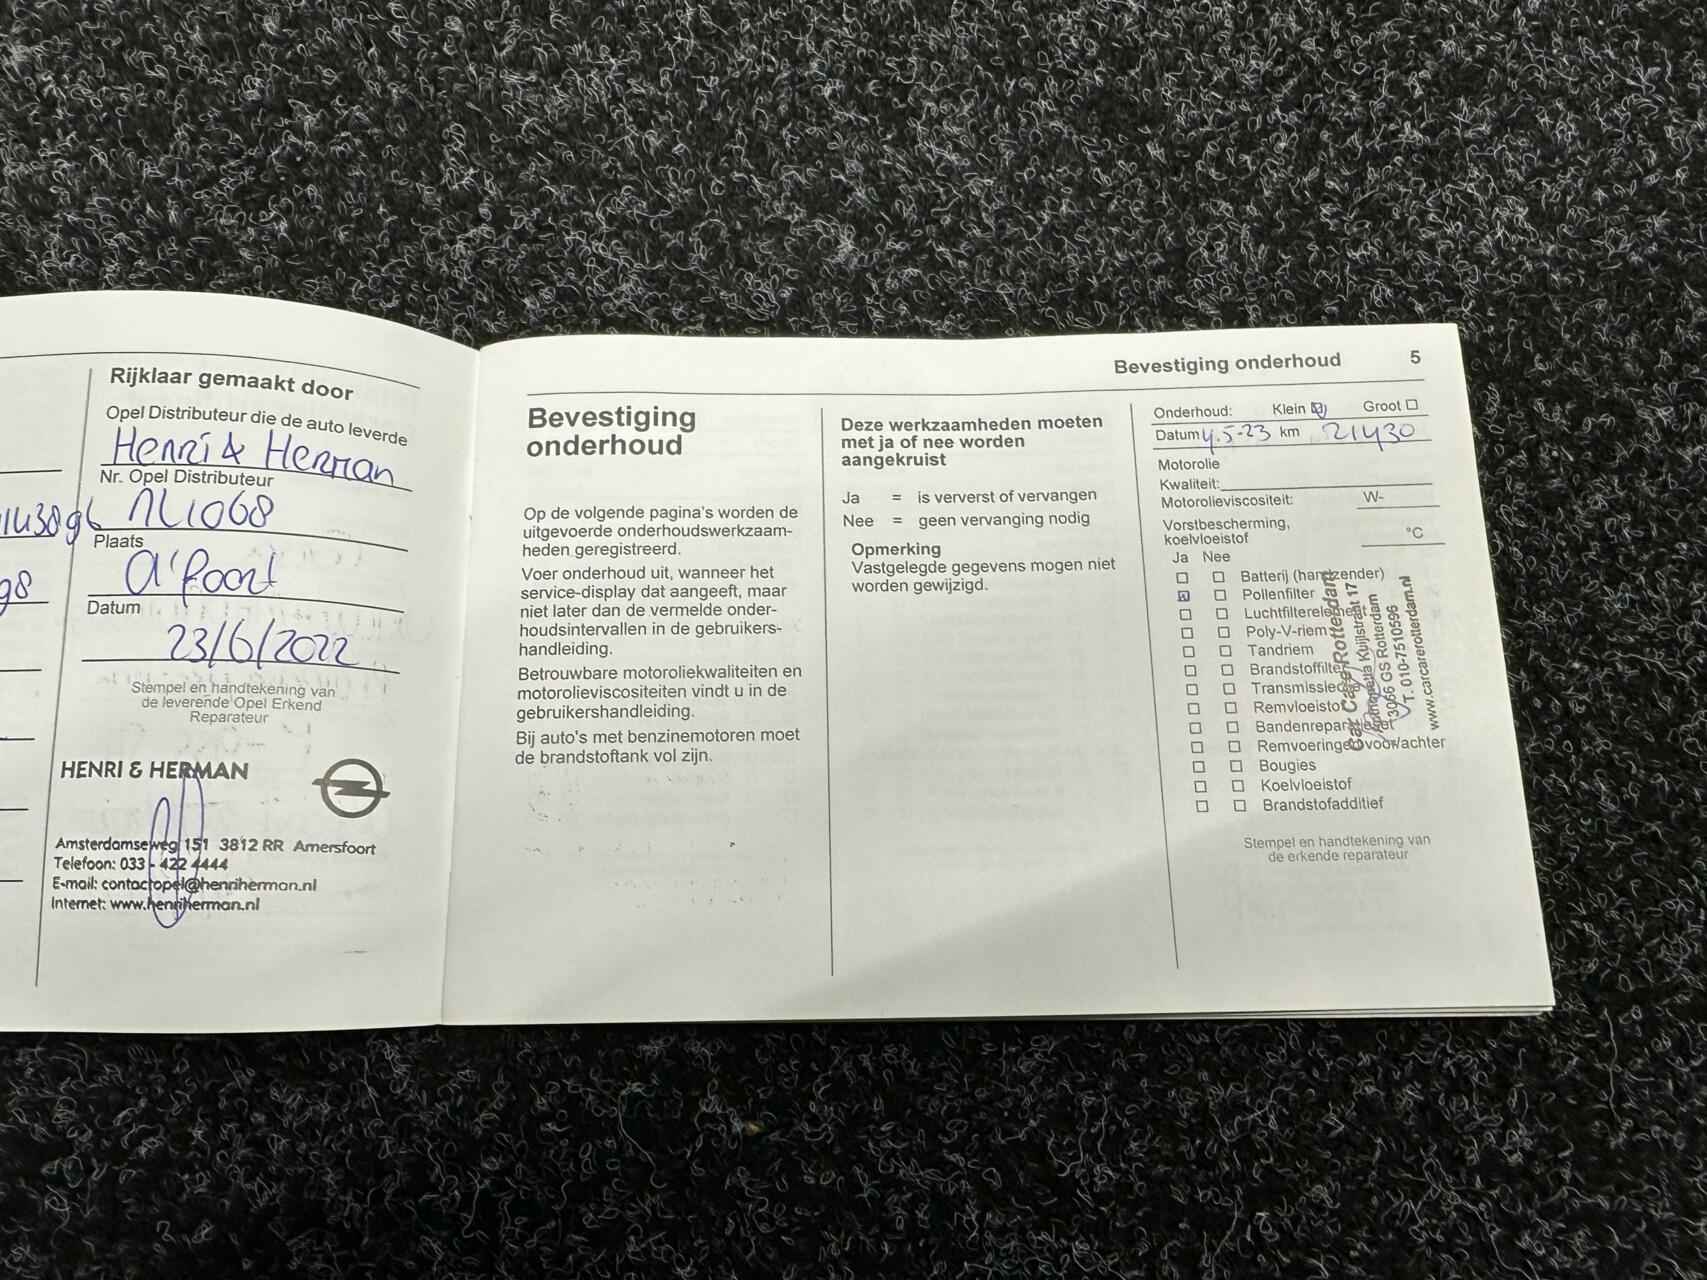 1438gb
98
Rijklaar gemaakt door
Opel Distributeur die de auto leverde
Henri & Herman
Nr. Opel Distributeur
NL1068
Plaats
A'foort
Datum
23/6/2022
Stempel en handtekening van
de leverende Opel Erkend
Reparateur
HENRI & HERMAN
Amsterdamseweg 151 3812 RR Amersfoort
Telefoon: 033 - 422 4444
E-mail: contactopel@henriherman.nl
Internet: www.henriherman.nl
Bevestiging onderhoud 5
Bevestiging
onderhoud
Op de volgende pagina's worden de
uitgevoerde onderhoudswerkzaam-
heden geregistreerd.
Voer onderhoud uit, wanneer het
service-display dat aangeeft, maar
niet later dan de vermelde onder-
houdsintervallen in de gebruikers-
handleiding.
Betrouwbare motoroliekwaliteiten en
motorolieviscositeiten vindt u in de
gebruikershandleiding.
Bij auto's met benzinemotoren moet
de brandstoftank vol zijn.
Deze werkzaamheden moeten
met ja of nee worden
aangekruist
Ja = is ververst of vervangen
Nee = geen vervanging nodig
Opmerking
Vastgelegde gegevens mogen niet
worden gewijzigd.
Onderhoud: Klein Groot
Datum 4.5-23 km 21430
Motorolie
Kwaliteit:
Motorolieviscositeit: W-
Vorstbescherming,
koelvloeistof °C
Ja Nee
Batterij (handzender)
Pollenfilter
Luchtfilterelement
Poly-V-riem
Tandriem
Brandstoffilter
Remvloeistof
Bandenreparatieset
Remvoeringen voor/achter
Bougies
Koelvloeistof
Brandstofadditief
Car Care Rotterdam
Kuijlstraat 17
3066 GS Rotterdam
T. 010-7510596
www.carcarerotterdam.nl
Stempel en handtekening van
de erkende reparateur